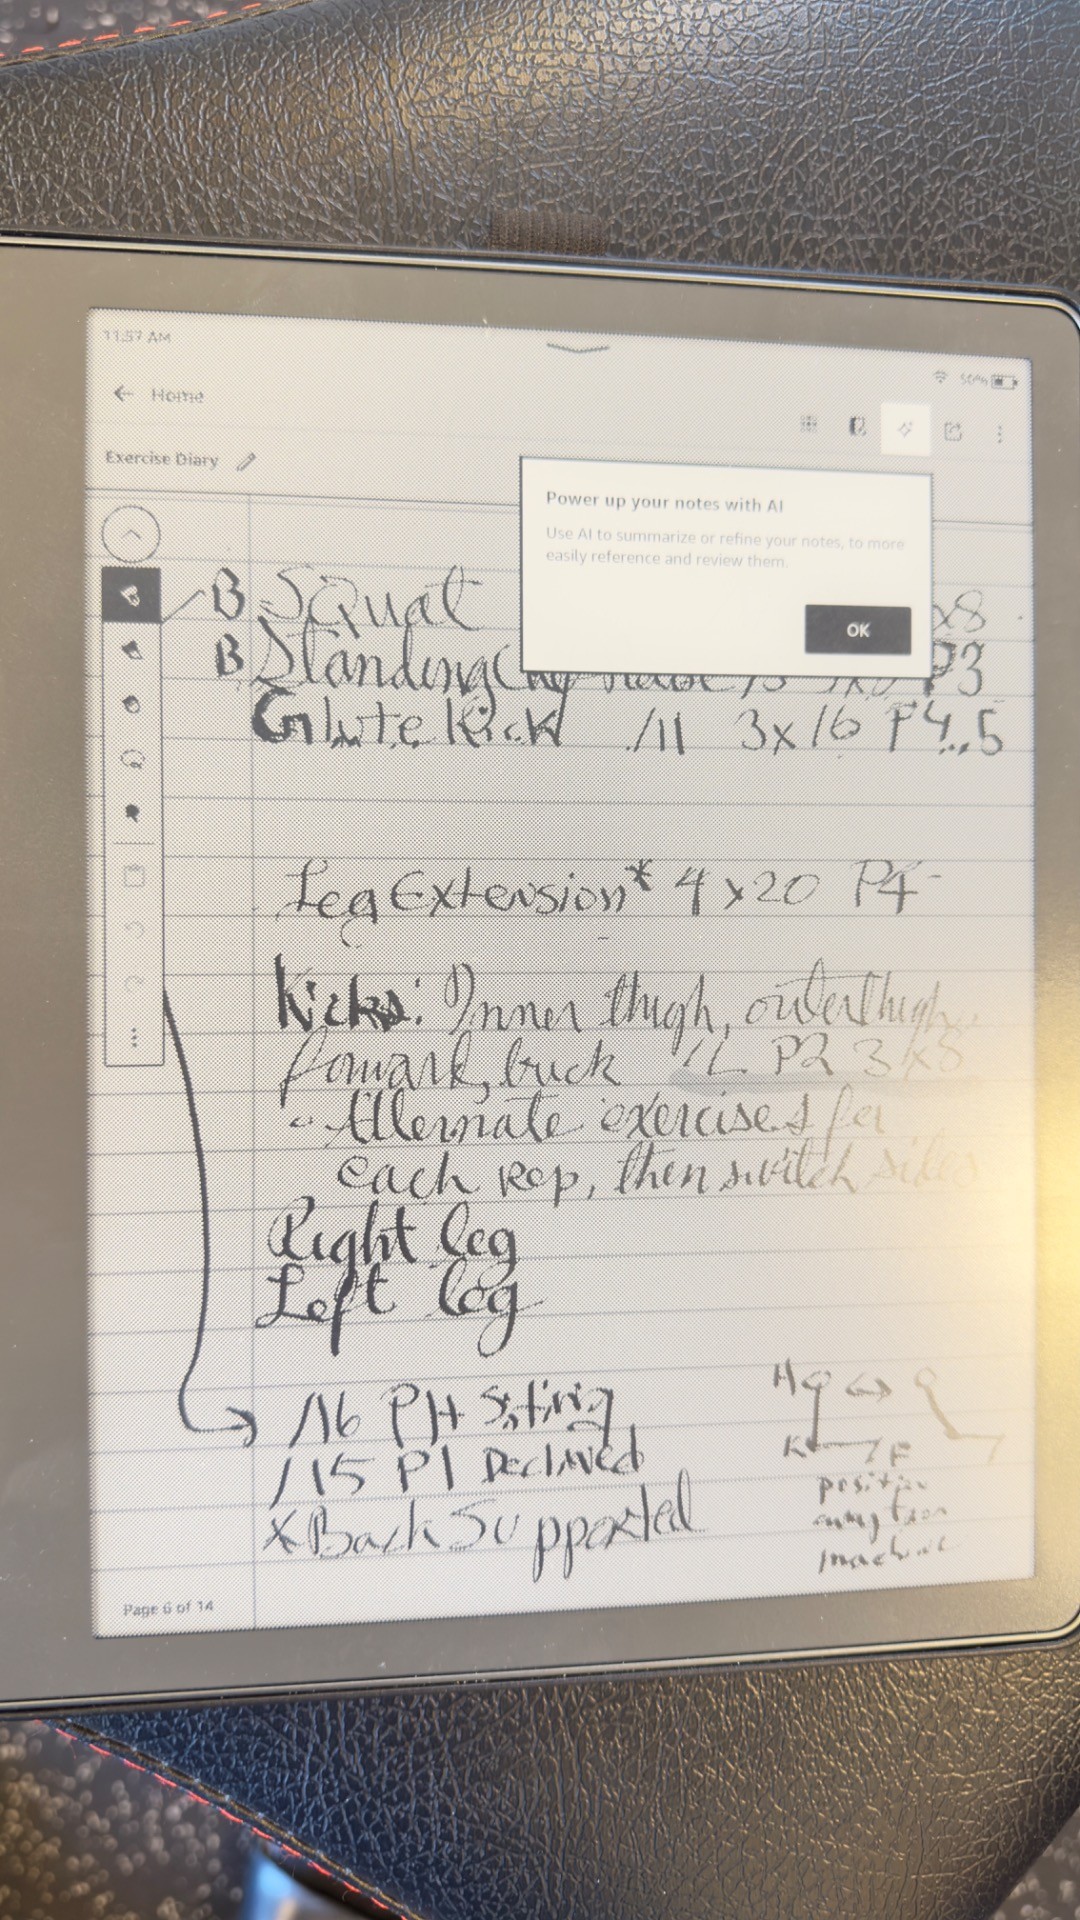 11:57 AM
50%
← Home
Exercise Diary
Power up your notes with AI
Use AI to summarize or refine your notes, to more
easily reference and review them.
OK
B Squat x8
B Standing P3
Glute Kick /11 3x16 P4..5
Leg Extension* 4x20 P4
Kicks: Inner thigh, outer thigh,
forward, back /L P2 3x8
Alternate exercises for
each rep, then switch sides
Right leg
Left leg
/16 PH Sitting
/15 P1 Declined
x Back Supported
H
K F
position
machine
Page 6 of 14